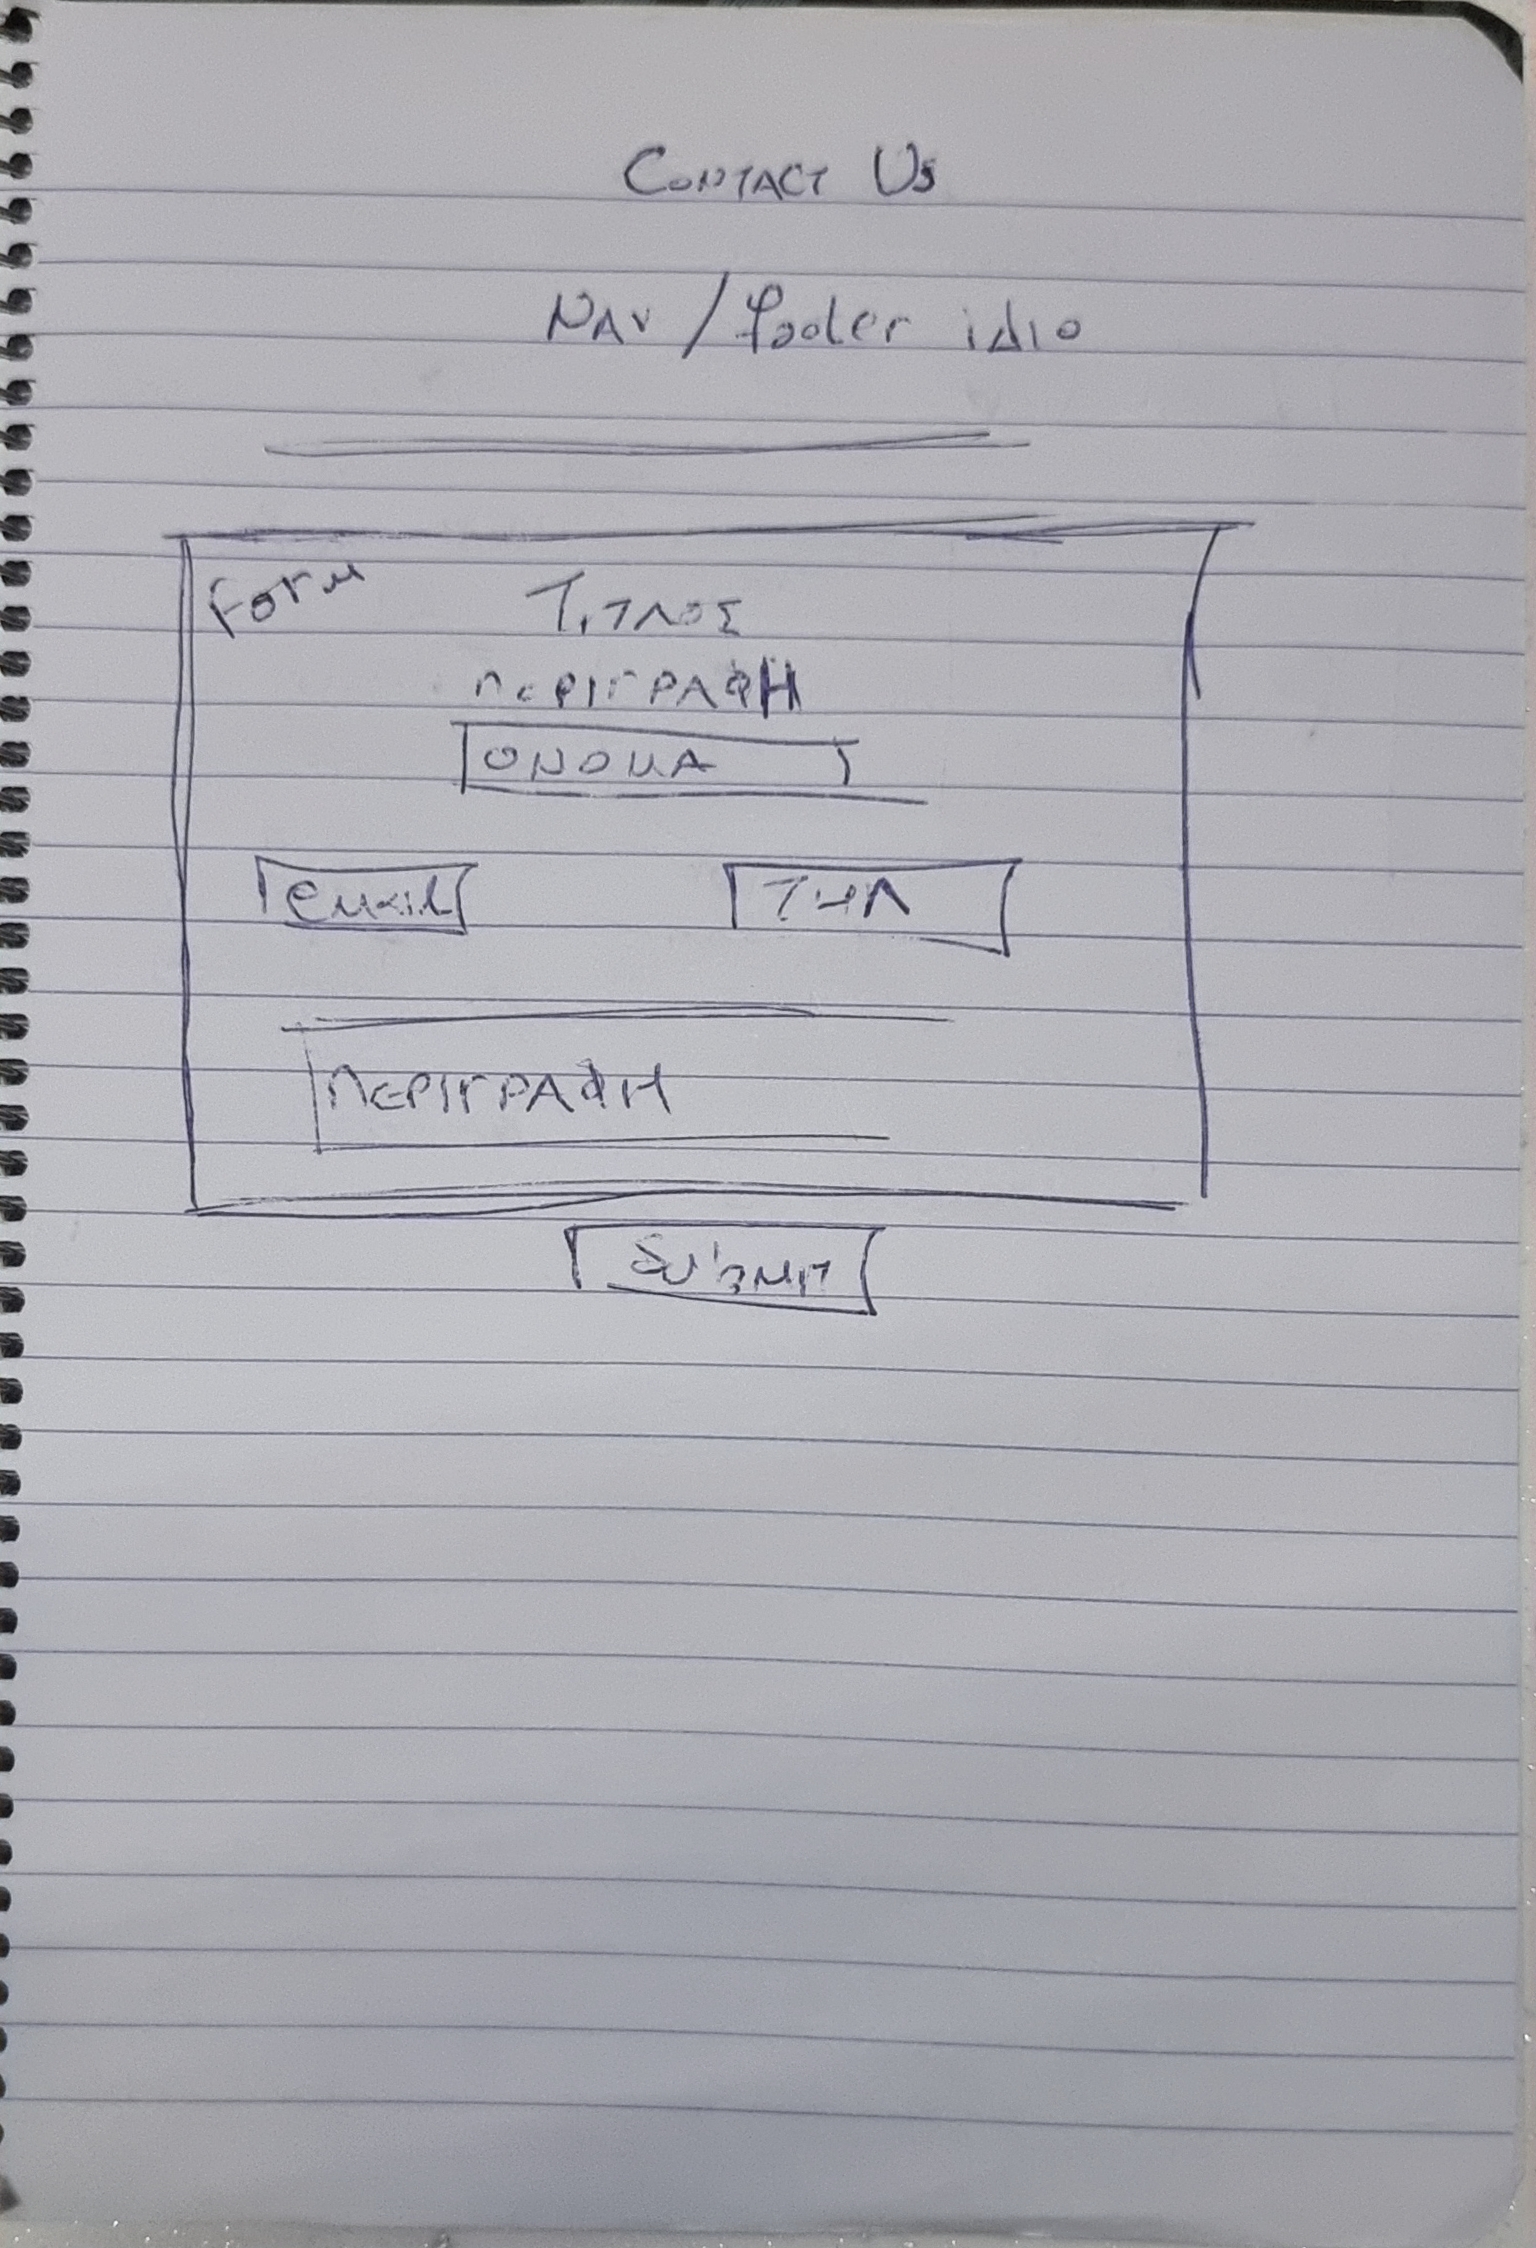 CONTACT Us
NAV / footer ιΔιο
Form
ΤιΤΛΟΣ
ΠΕΡΙΓΡΑΦΗ
ΟΝΟΜΑ
email ΤΗΛ
ΠΕΡΙΓΡΑΦΗ
SUBMIT